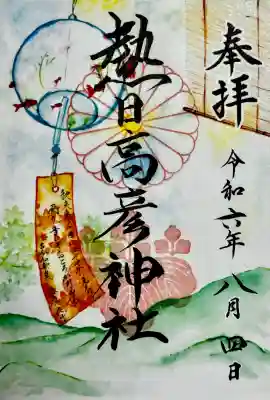 奉拝
令和六年八月四日
熱日高彦神社